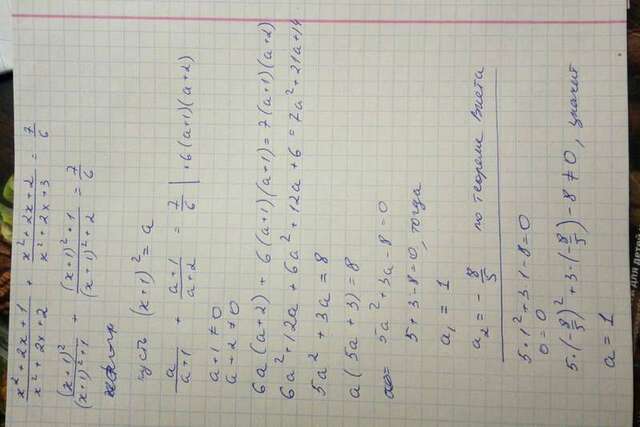 x² + 2x + 1 / x² + 2x + 2 + x² + 2x + 2 / x² + 2x + 3 = 7/6
(x+1)² / (x+1)² + 1 + (x+1)² + 1 / (x+1)² + 2 = 7/6
пусть (x+1)² = a
a / a+1 + a+1 / a+2 = 7/6 | · 6(a+1)(a+2)
a+1 ≠ 0
a+2 ≠ 0
6a(a+2) + 6(a+1)(a+1) = 7(a+1)(a+2)
6a² + 12a + 6a² + 12a + 6 = 7a² + 21a + 14
5a² + 3a = 8
a(5a + 3) = 8
5a² + 3a - 8 = 0
5 + 3 - 8 = 0, тогда
a₁ = 1
a₂ = - 8/5 по теореме Виета
5·1² + 3·1 - 8 = 0
0 = 0
5·(-8/5)² + 3·(-8/5) - 8 ≠ 0, значит
a = 1